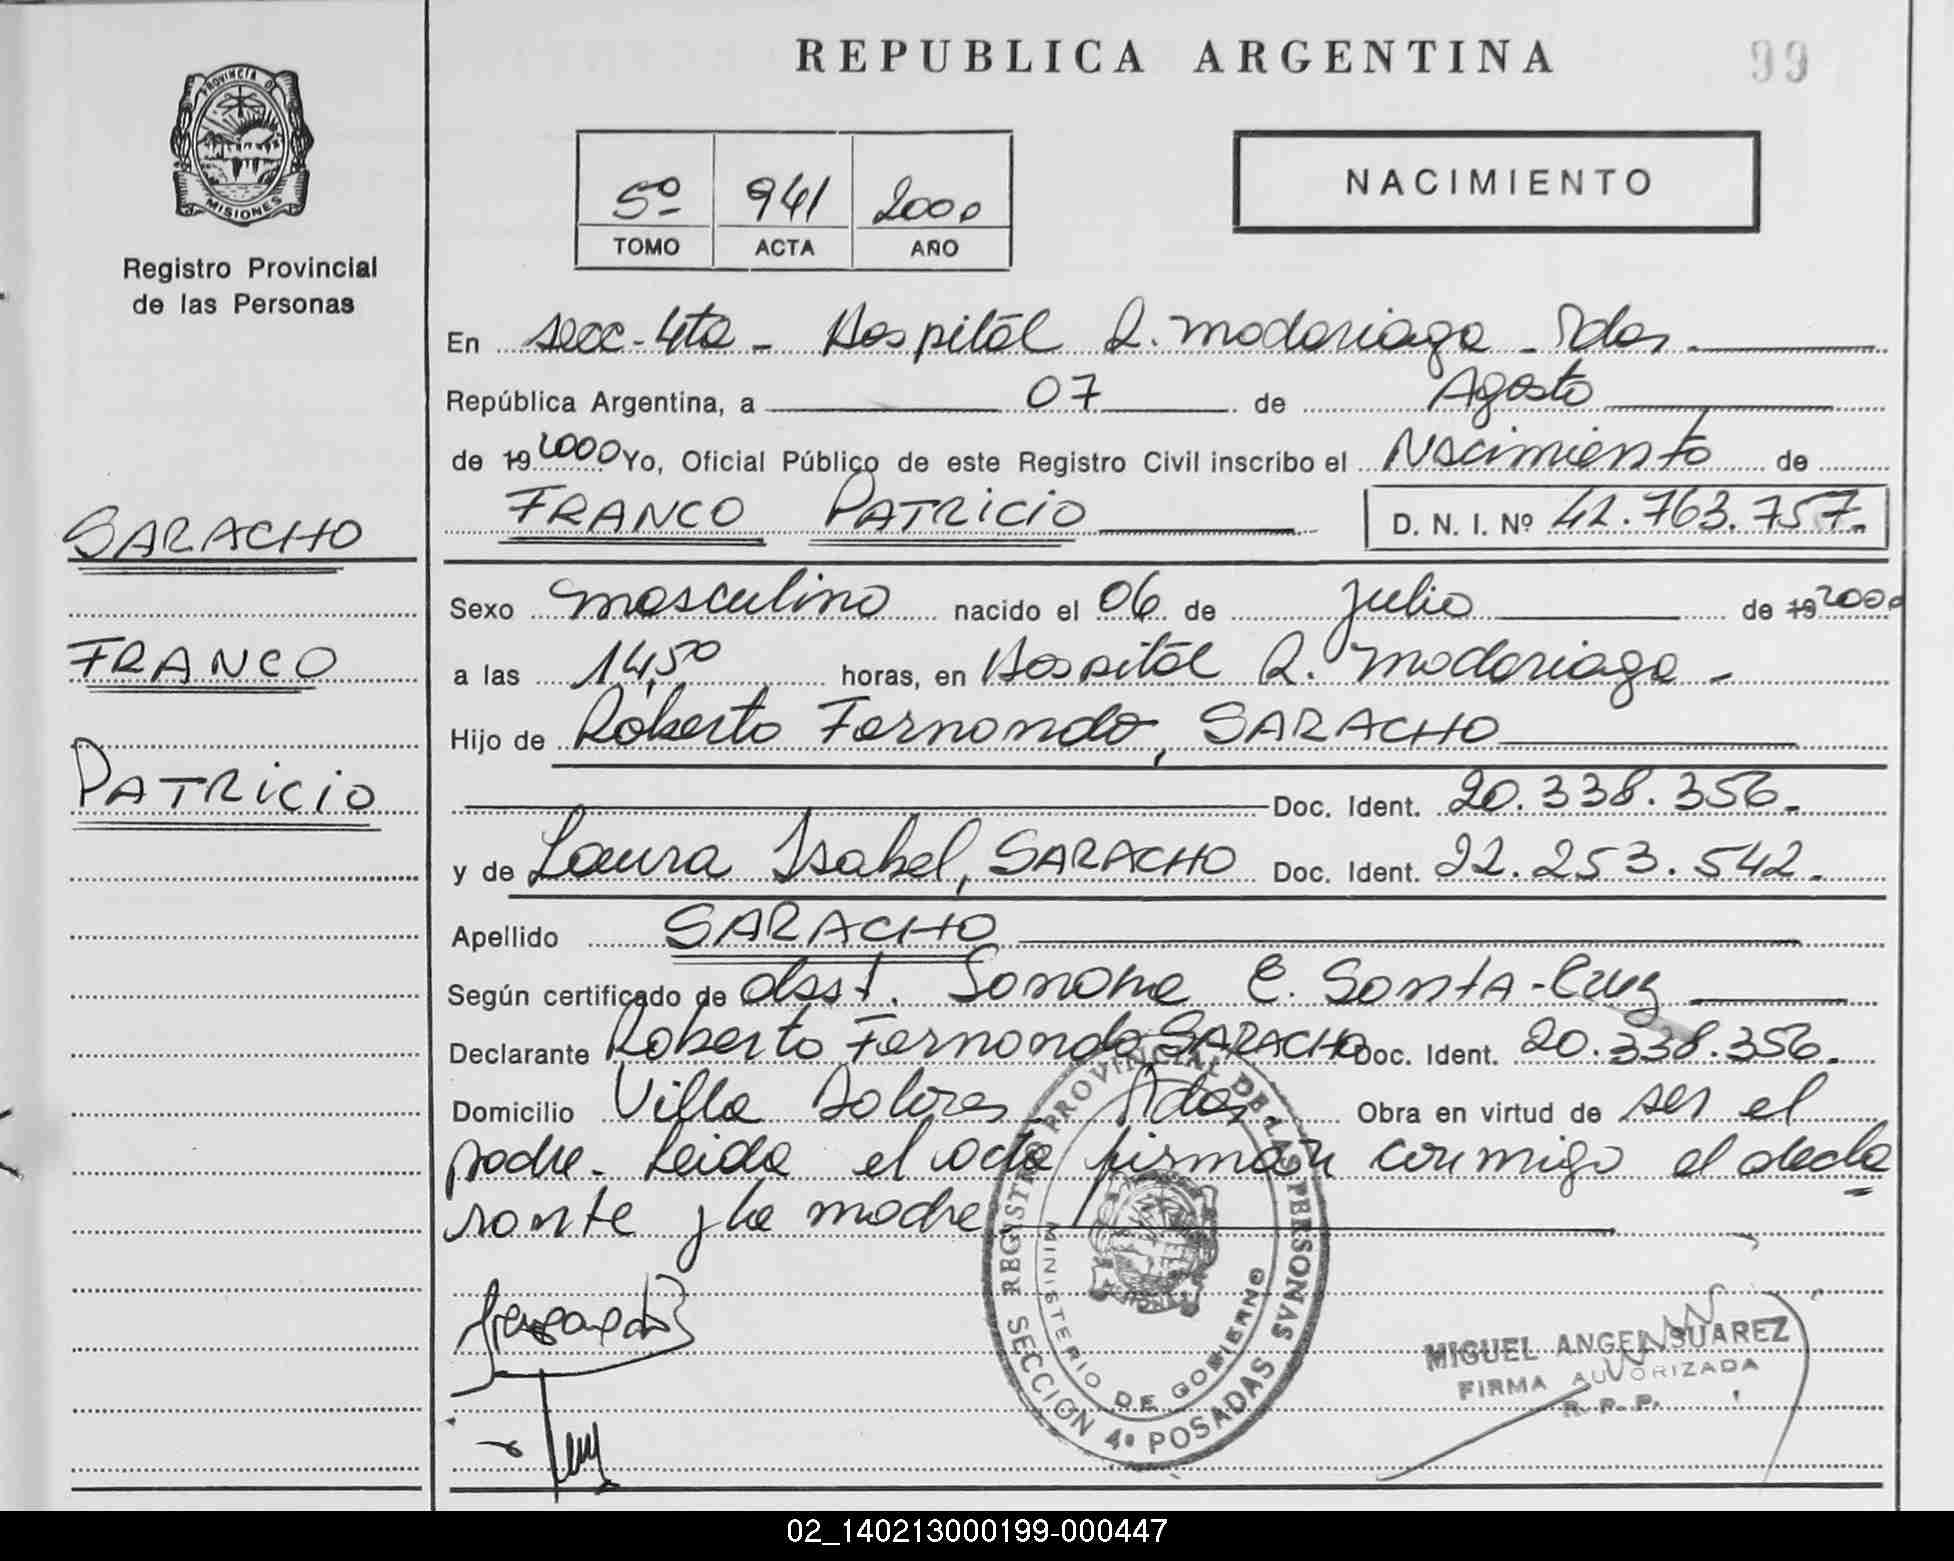 REPUBLICA ARGENTINA
99
PROVINCIA DE
MISIONES
Registro Provincial
de las Personas
5º 941 2000
TOMO ACTA AÑO
NACIMIENTO
En secc-4ta - Hospital R. Madariaga - Pdas.
República Argentina, a 07 de Agosto
de 19 2000 Yo, Oficial Público de este Registro Civil inscribo el Nacimiento de
FRANCO PATRICIO D. N. I. Nº 42.763.757.
Sexo masculino nacido el 06 de Julio de 19 2000
a las 14,50 horas, en Hospital R. Madariaga -
Hijo de Roberto Fernando, SARACHO
Doc. Ident. 20.338.356.
y de Laura Isabel, SARACHO Doc. Ident. 22.253.542.
Apellido SARACHO
Según certificado de obst. E. Santa-Cruz
Declarante Roberto Fernando SARACHO Doc. Ident. 20.338.356.
Domicilio Villa Dolores - Pdas. Obra en virtud de ser el
padre. Leida el acta firman conmigo el decla
rante y la madre
SARACHO
FRANCO
PATRICIO
REGISTRO PROVINCIAL DE LAS PERSONAS
MINISTERIO DE GOBIERNO
SECCION 4ª POSADAS
MIGUEL ANGEL SUAREZ
FIRMA AUTORIZADA
R. P. P.
02_140213000199-000447